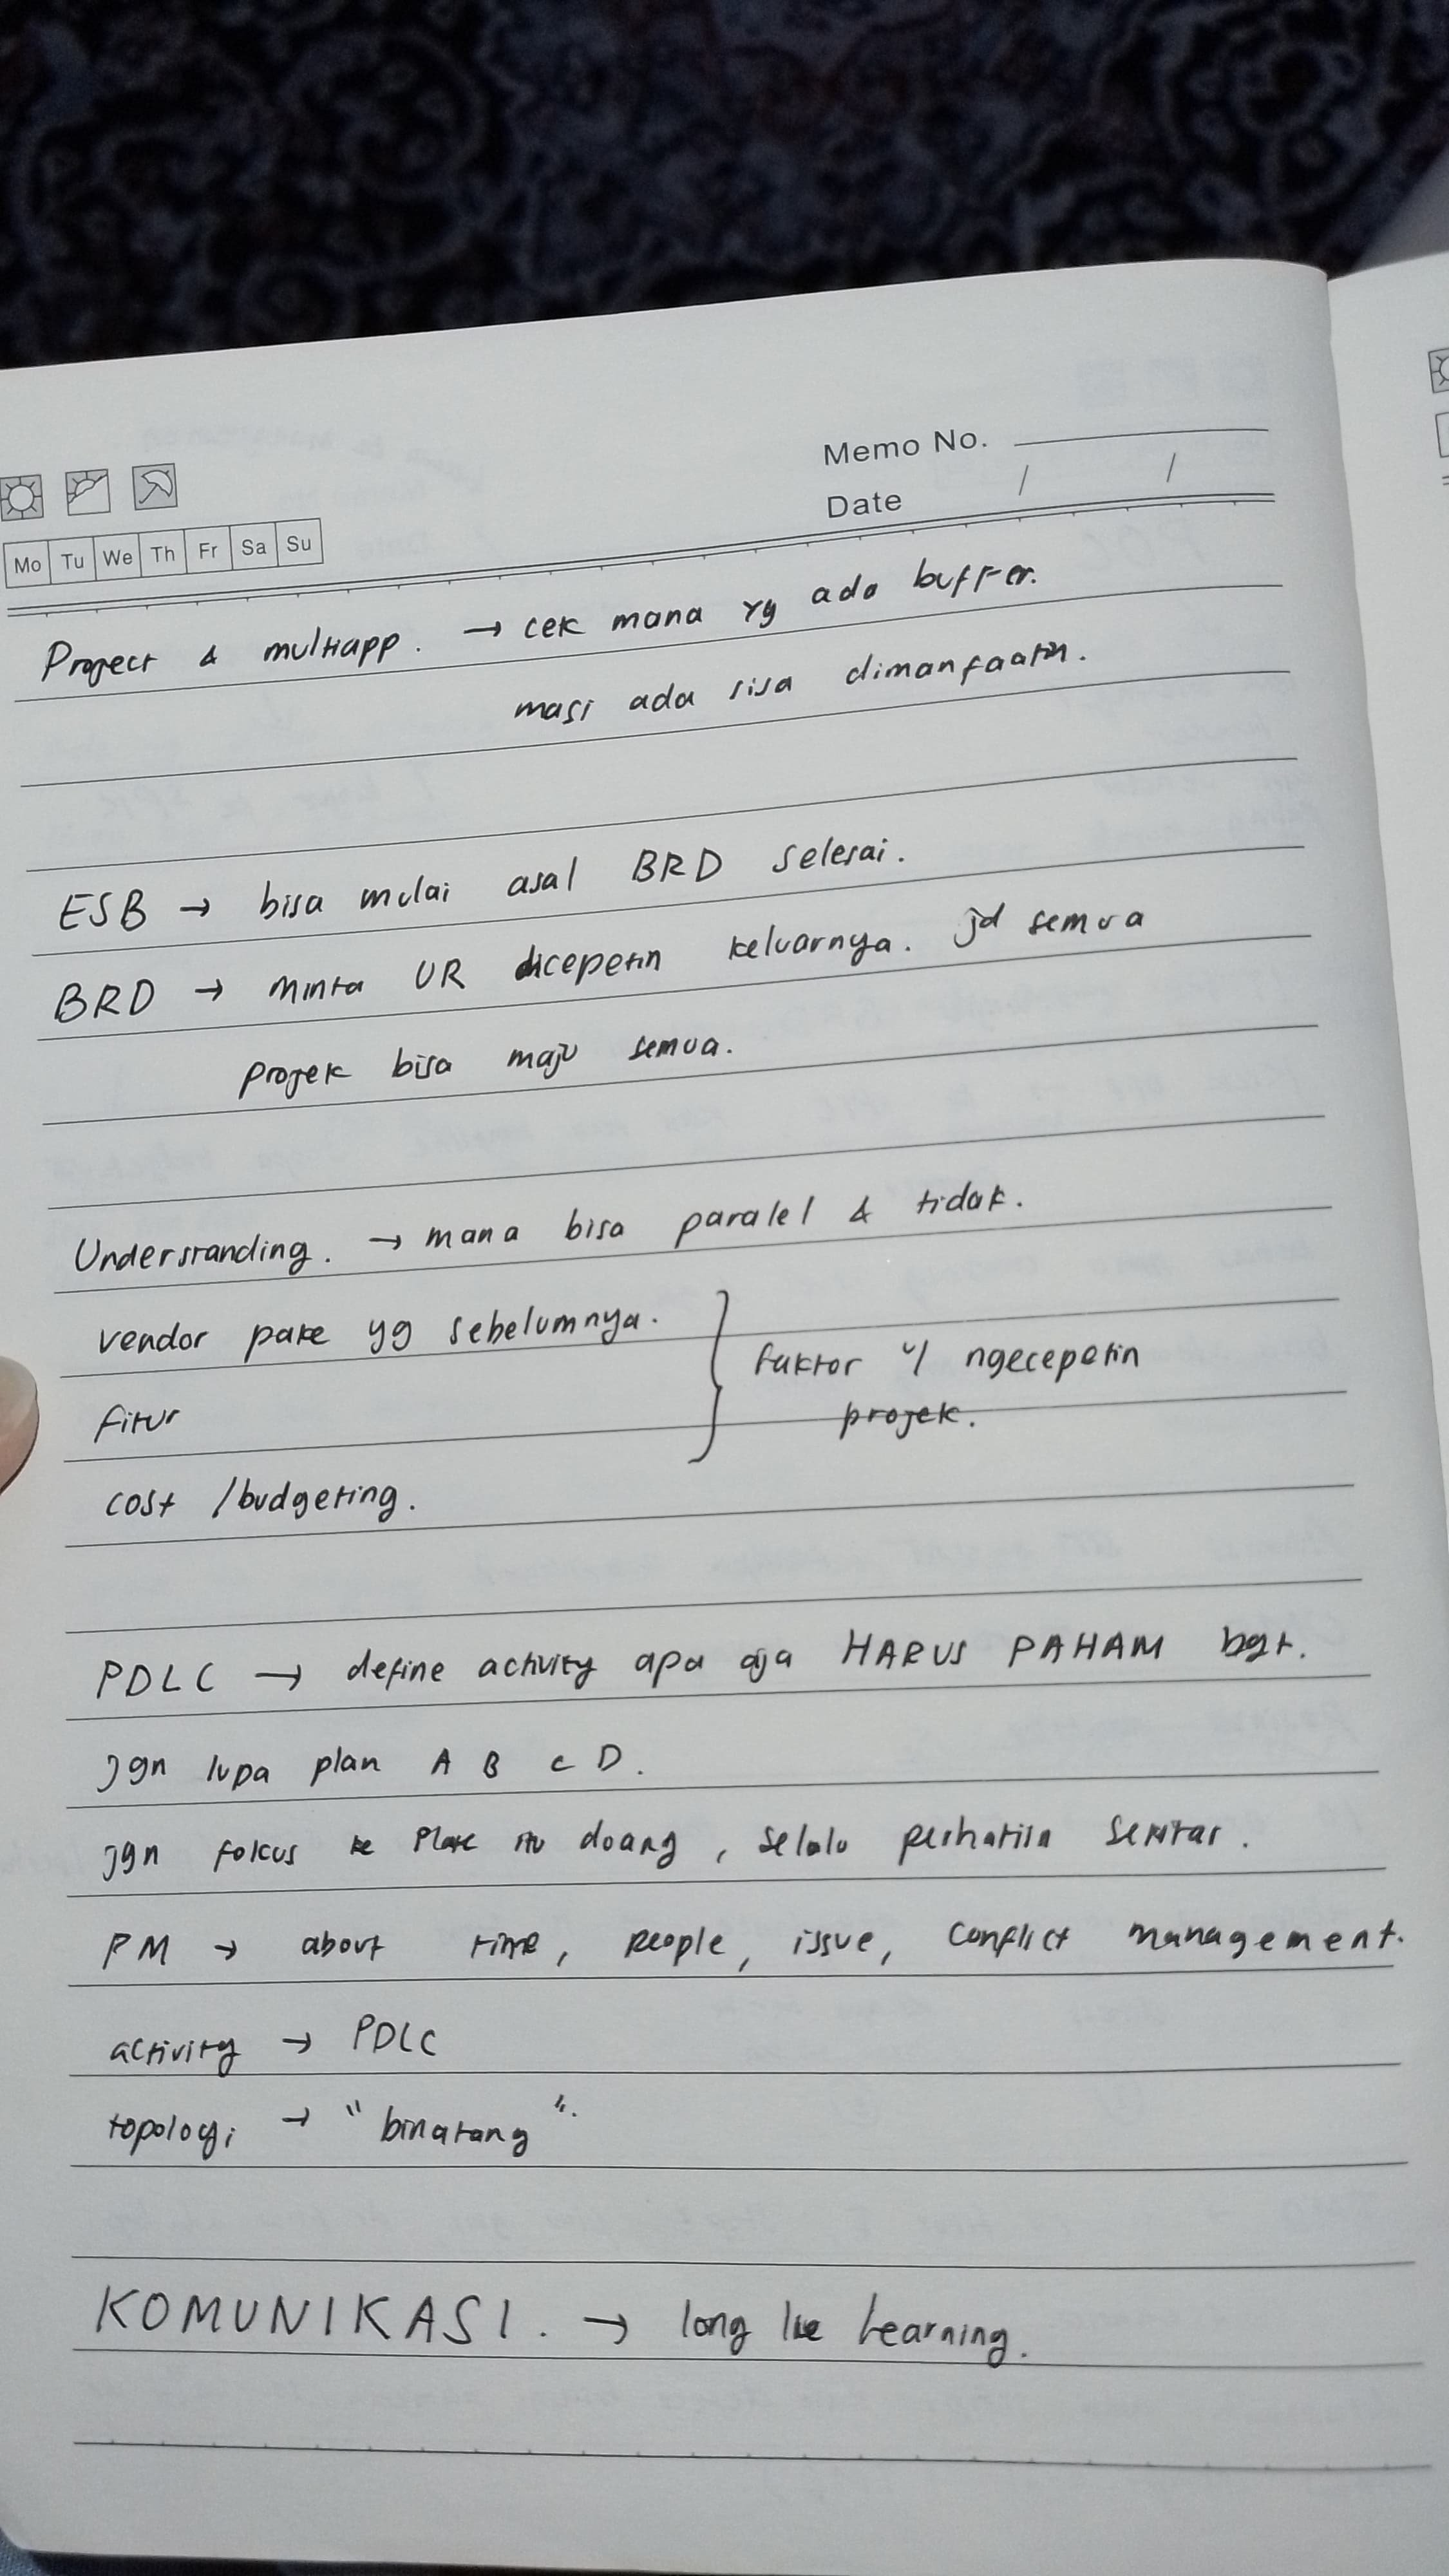 Memo No.
Date / /
Mo Tu We Th Fr Sa Su
Project & multiapp. → cek mana yg ada buffer.
masi ada sisa dimanfaatin.
ESB → bisa mulai asal BRD selesai.
BRD → minta UR dicepetin keluarnya. jd semua
projek bisa maju semua.
Understanding. → mana bisa paralel & tidak.
vendor pake yg sebelumnya.
fitur } faktor u/ ngecepetin
projek.
cost /budgeting.
PDLC → define activity apa aja HARUS PAHAM bgt.
jgn lupa plan A B C D.
jgn fokus ke itu doang, selalu perhatiin sekitar.
PM → about time, people, issue, conflict management.
activity → PDLC
topologi → "binatang".
KOMUNIKASI. → long learning.